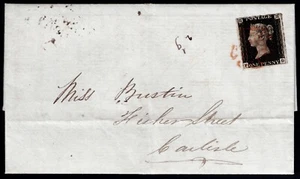 POSTAGE
ONE PENNY
Miss Bustin
Fisher Street
Carlisle